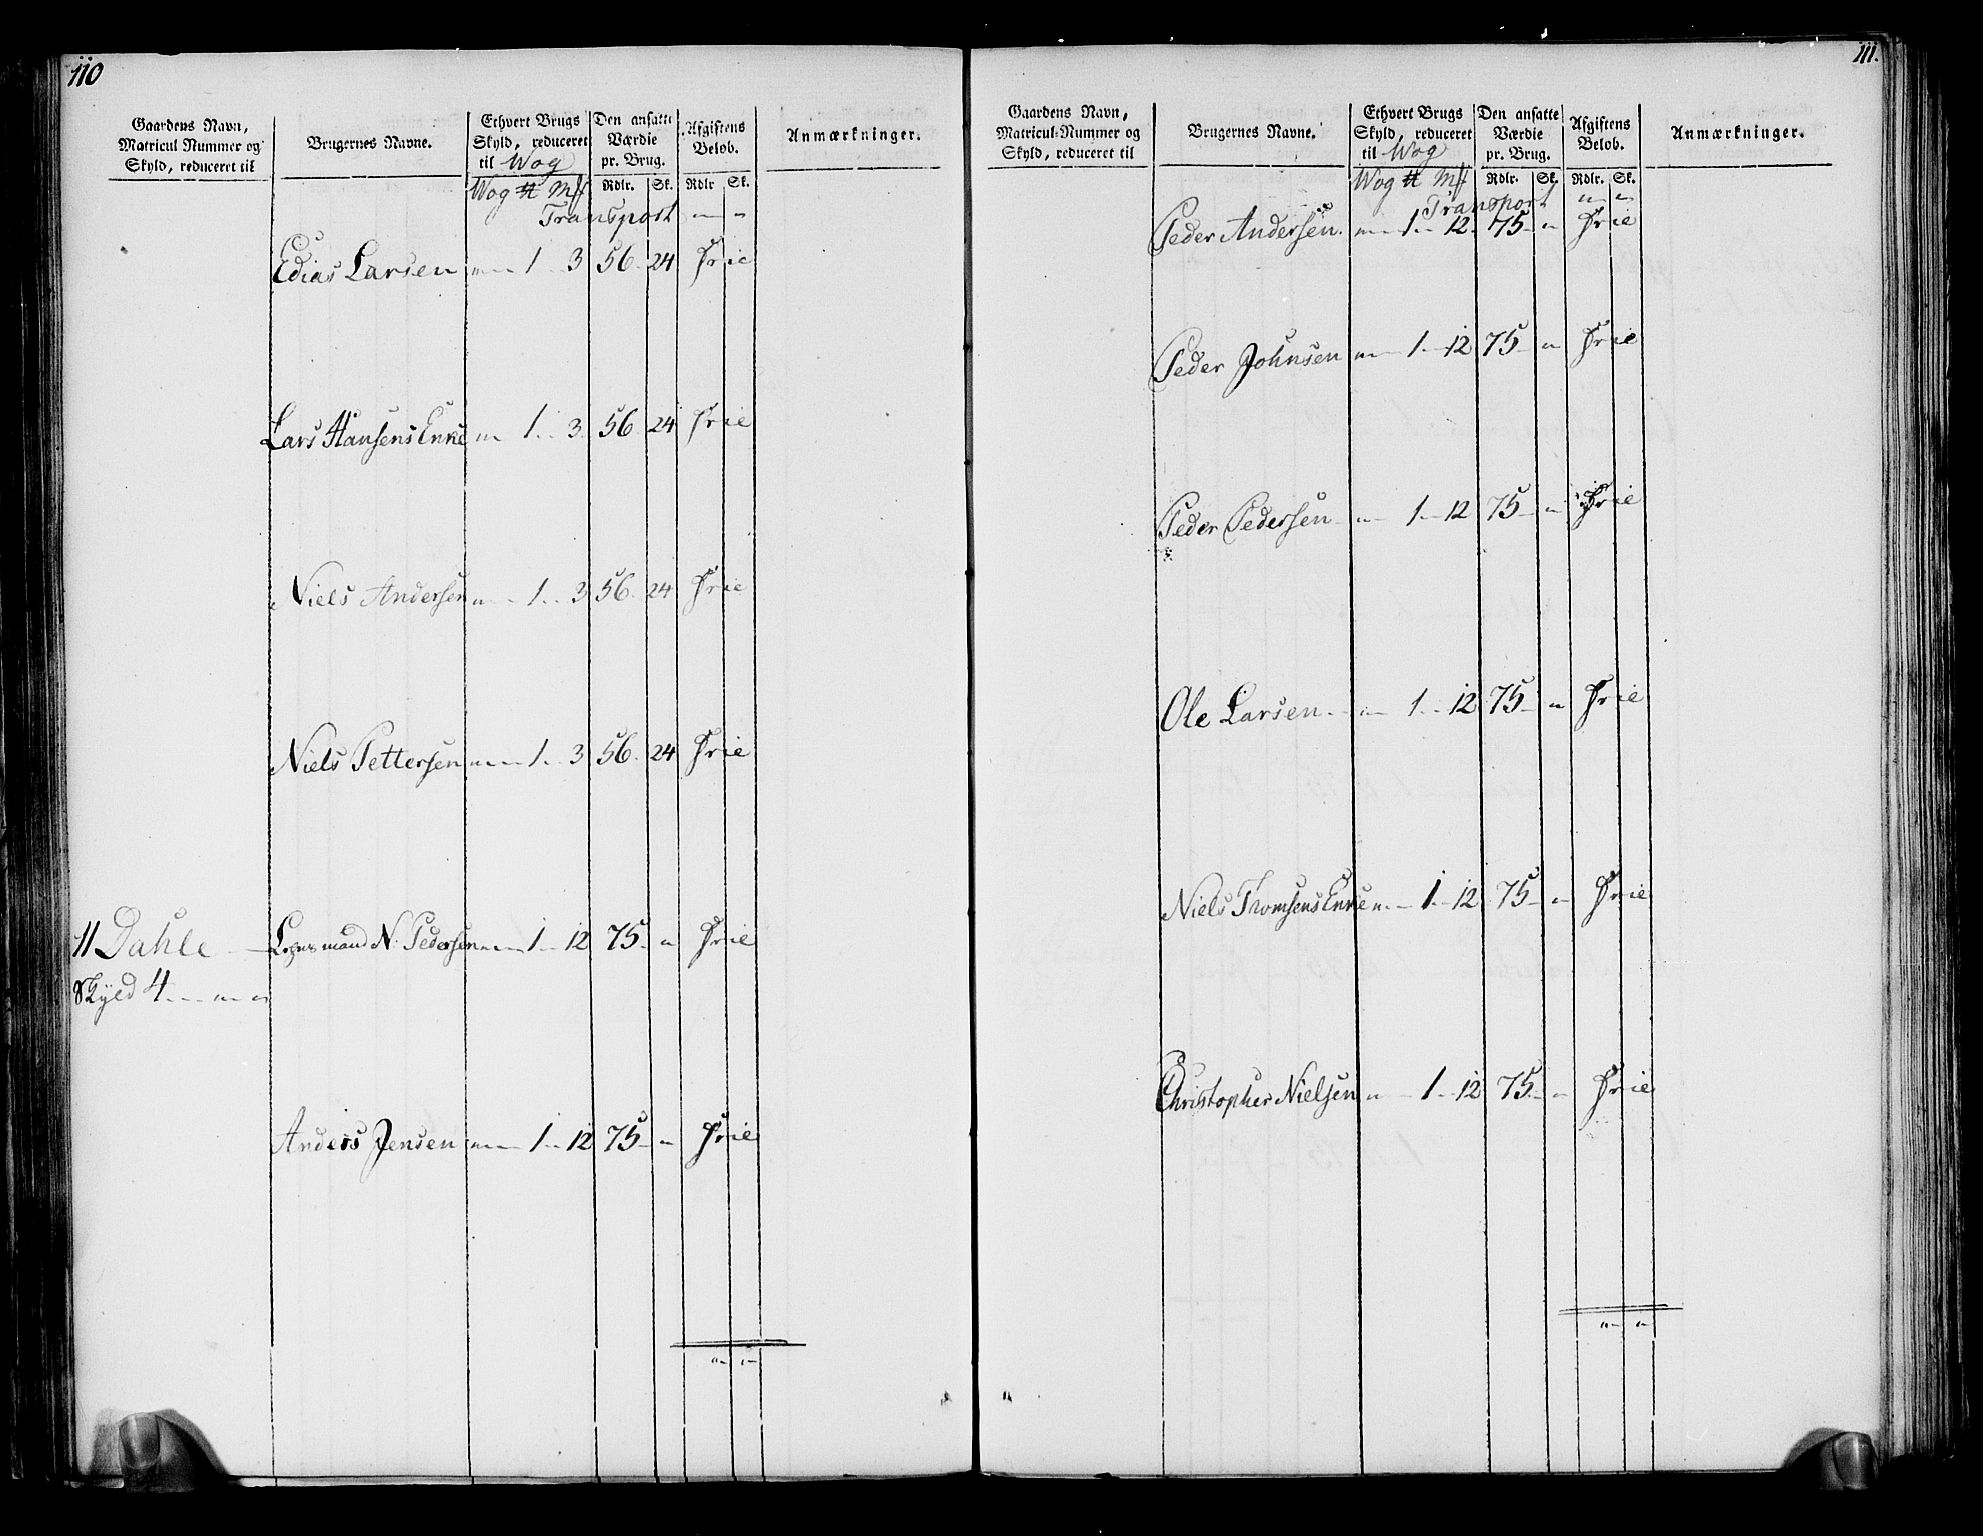 110
Gaardens Navn, Matricul Nummer og Skyld, reduceret til
Brugernes Navne.
Ethvert Brugs Skyld, reduceret til Wog
Den ansatte Værdie pr. Brug.
Afgiftens Beløb.
Anmærkninger.
Wog ℔ Mk Rdlr. Sk. Rdlr Sk.
Transport " "
Edias Larsen " 1 " 3 56 " 24 Frie
Lars Hansens Enke " 1 " 3 56 " 24 Frie
Niels Andersen " 1 " 3 56 " 24 Frie
Niels Pettersen " 1 " 3 56 " 24 Frie
11 Dahle Legnsmand N: Pedersen " 1 " 12 75 " Frie
Skyld 4 " "
Anders Jensen " 1 " 12 75 " Frie
" "
111.
Gaardens Navn, Matricul-Nummer og Skyld, reduceret til
Brugernes Navne.
Ethvert Brugs Skyld, reduceret til Wog
Den ansatte Værdie pr. Brug.
Afgiftens Beløb.
Anmærkninger.
Wog ℔ Mk Rdlr. Sk. Rdlr. Sk.
Transport " "
Peder Andersen " 1 " 12 75 " Frie
Peder Johnsen " 1 " 12 75 " Frie
Peder Pedersen " 1 " 12 75 " Frie
Ole Larsen " 1 " 12 75 " Frie
Niels Tromsens Enke " 1 " 12 75 " Frie
Christopher Nielsen " 1 " 12 75 " Frie
" "